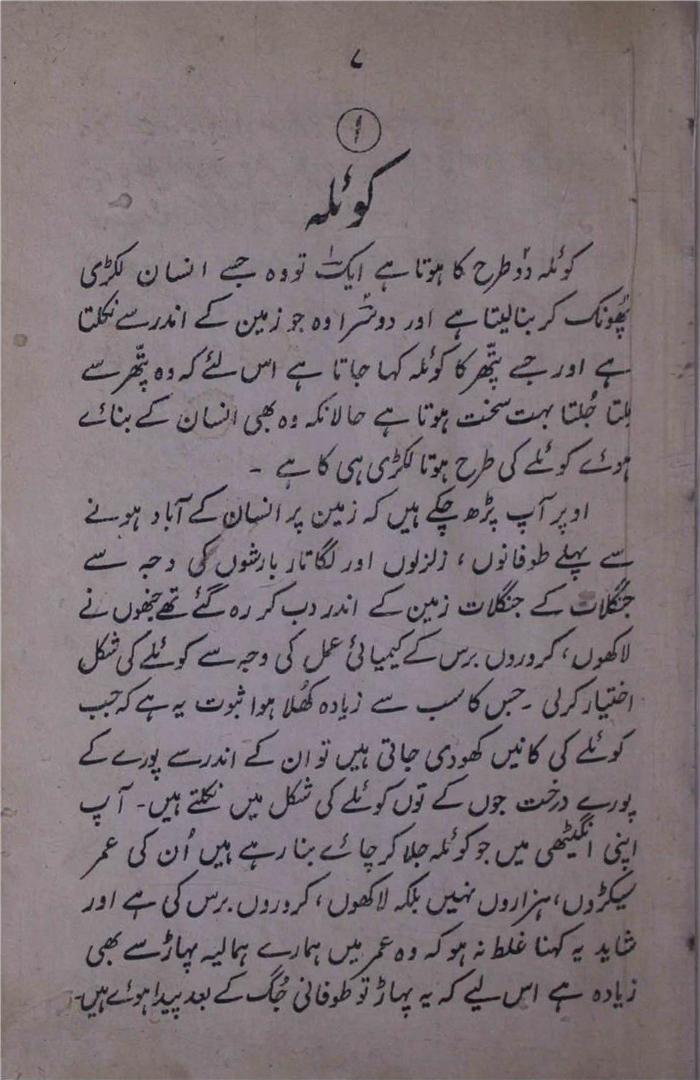 ۷
۱
کوئلہ
کوئلہ دو طرح کا ہوتا ہے ایک تو وہ جسے انسان لکڑی
پُھونک کر بنا لیتا ہے اور دوسرا وہ جو زمین کے اندر سے نکلتا
ہے اور جسے پتّھر کا کوئلہ کہا جاتا ہے اس لئے کہ وہ پتّھر سے
ملتا جُلتا بہت سخت ہوتا ہے حالانکہ وہ بھی انسان کے بنائے
ہوئے کوئلے کی طرح ہوتا لکڑی ہی کا ہے ۔
اوپر آپ پڑھ چکے ہیں کہ زمین پر انسان کے آباد ہونے
سے پہلے طوفانوں، زلزلوں اور لگاتار بارشوں کی وجہ سے
جنگلات کے جنگلات زمین کے اندر دب کر رہ گئے تھے جنھوں نے
لاکھوں، کروروں برس کے کیمیائی عمل کی وجہ سے کوئلے کی شکل
اختیار کر لی ۔ جس کا سب سے زیادہ کُھلا ہوا ثبوت یہ ہے کہ جب
کوئلے کی کانیں کھودی جاتی ہیں تو ان کے اندر سے پورے کے
پورے درخت جوں کے توں کوئلے کی شکل میں نکلتے ہیں۔ آپ
اپنی انگیٹھی میں جو کوئلہ جلا کر چائے بنا رہے ہیں اُن کی عمر
سیکڑوں، ہزاروں نہیں بلکہ لاکھوں، کروروں برس کی ہے اور
شاید یہ کہنا غلط نہ ہو کہ وہ عمر میں ہمارے ہمالیہ پہاڑ سے بھی
زیادہ ہے اس لیے کہ یہ پہاڑ تو طوفانی جُگ کے بعد پیدا ہوئے ہیں۔